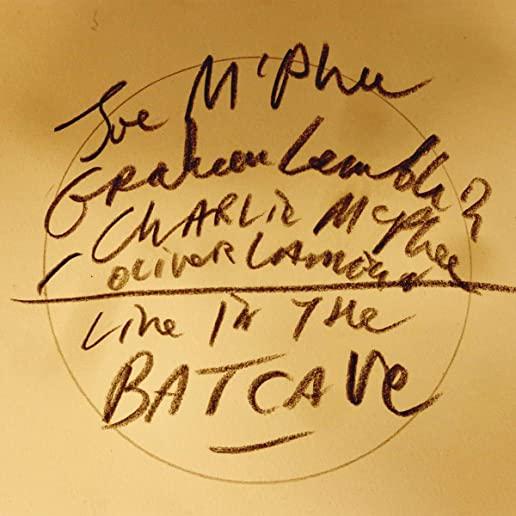 Joe M'Phee
Graham Lambkin
CHARLIE McPhee
/ OLIVER LAMBKIN
Live IN THE
BATCAVE